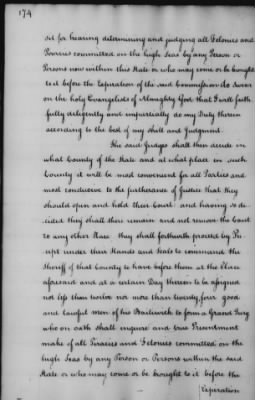 174
sit for hearing determining and judging all Felonies and
Piracies committed on the high Seas by any Person or
Persons now within this State or who may come or be brought
to it before the Expiration of the said Commission do Swear
on the holy Evangelists of Almighty God that I will faith
fully diligently and impartially do my Duty therein
according to the best of my skill and Judgment.
The said Judges shall then decide in
what County of the State and at what place in such
County it will be most convenient for all Parties and
most conducive to the furtherance of Justice that they
should open and hold their Court: and having so de-
cided they shall there remain and not remove the Court
to any other Place they shall forthwith proceed by Pre-
cept under their Hands and Seals to command the
Sheriff of that County to have before them at the Place
aforesaid and at a certain Day therein to be assigned
not less than twelve nor more than twenty four good
and lawful men of his Bailiwick to form a Grand Jury
who on oath shall enquire and true Presentment
make of all Piracies and Felonies committed on the
high Seas by any Person or Persons within the said
State or who may come or be brought to it before the
Expiration